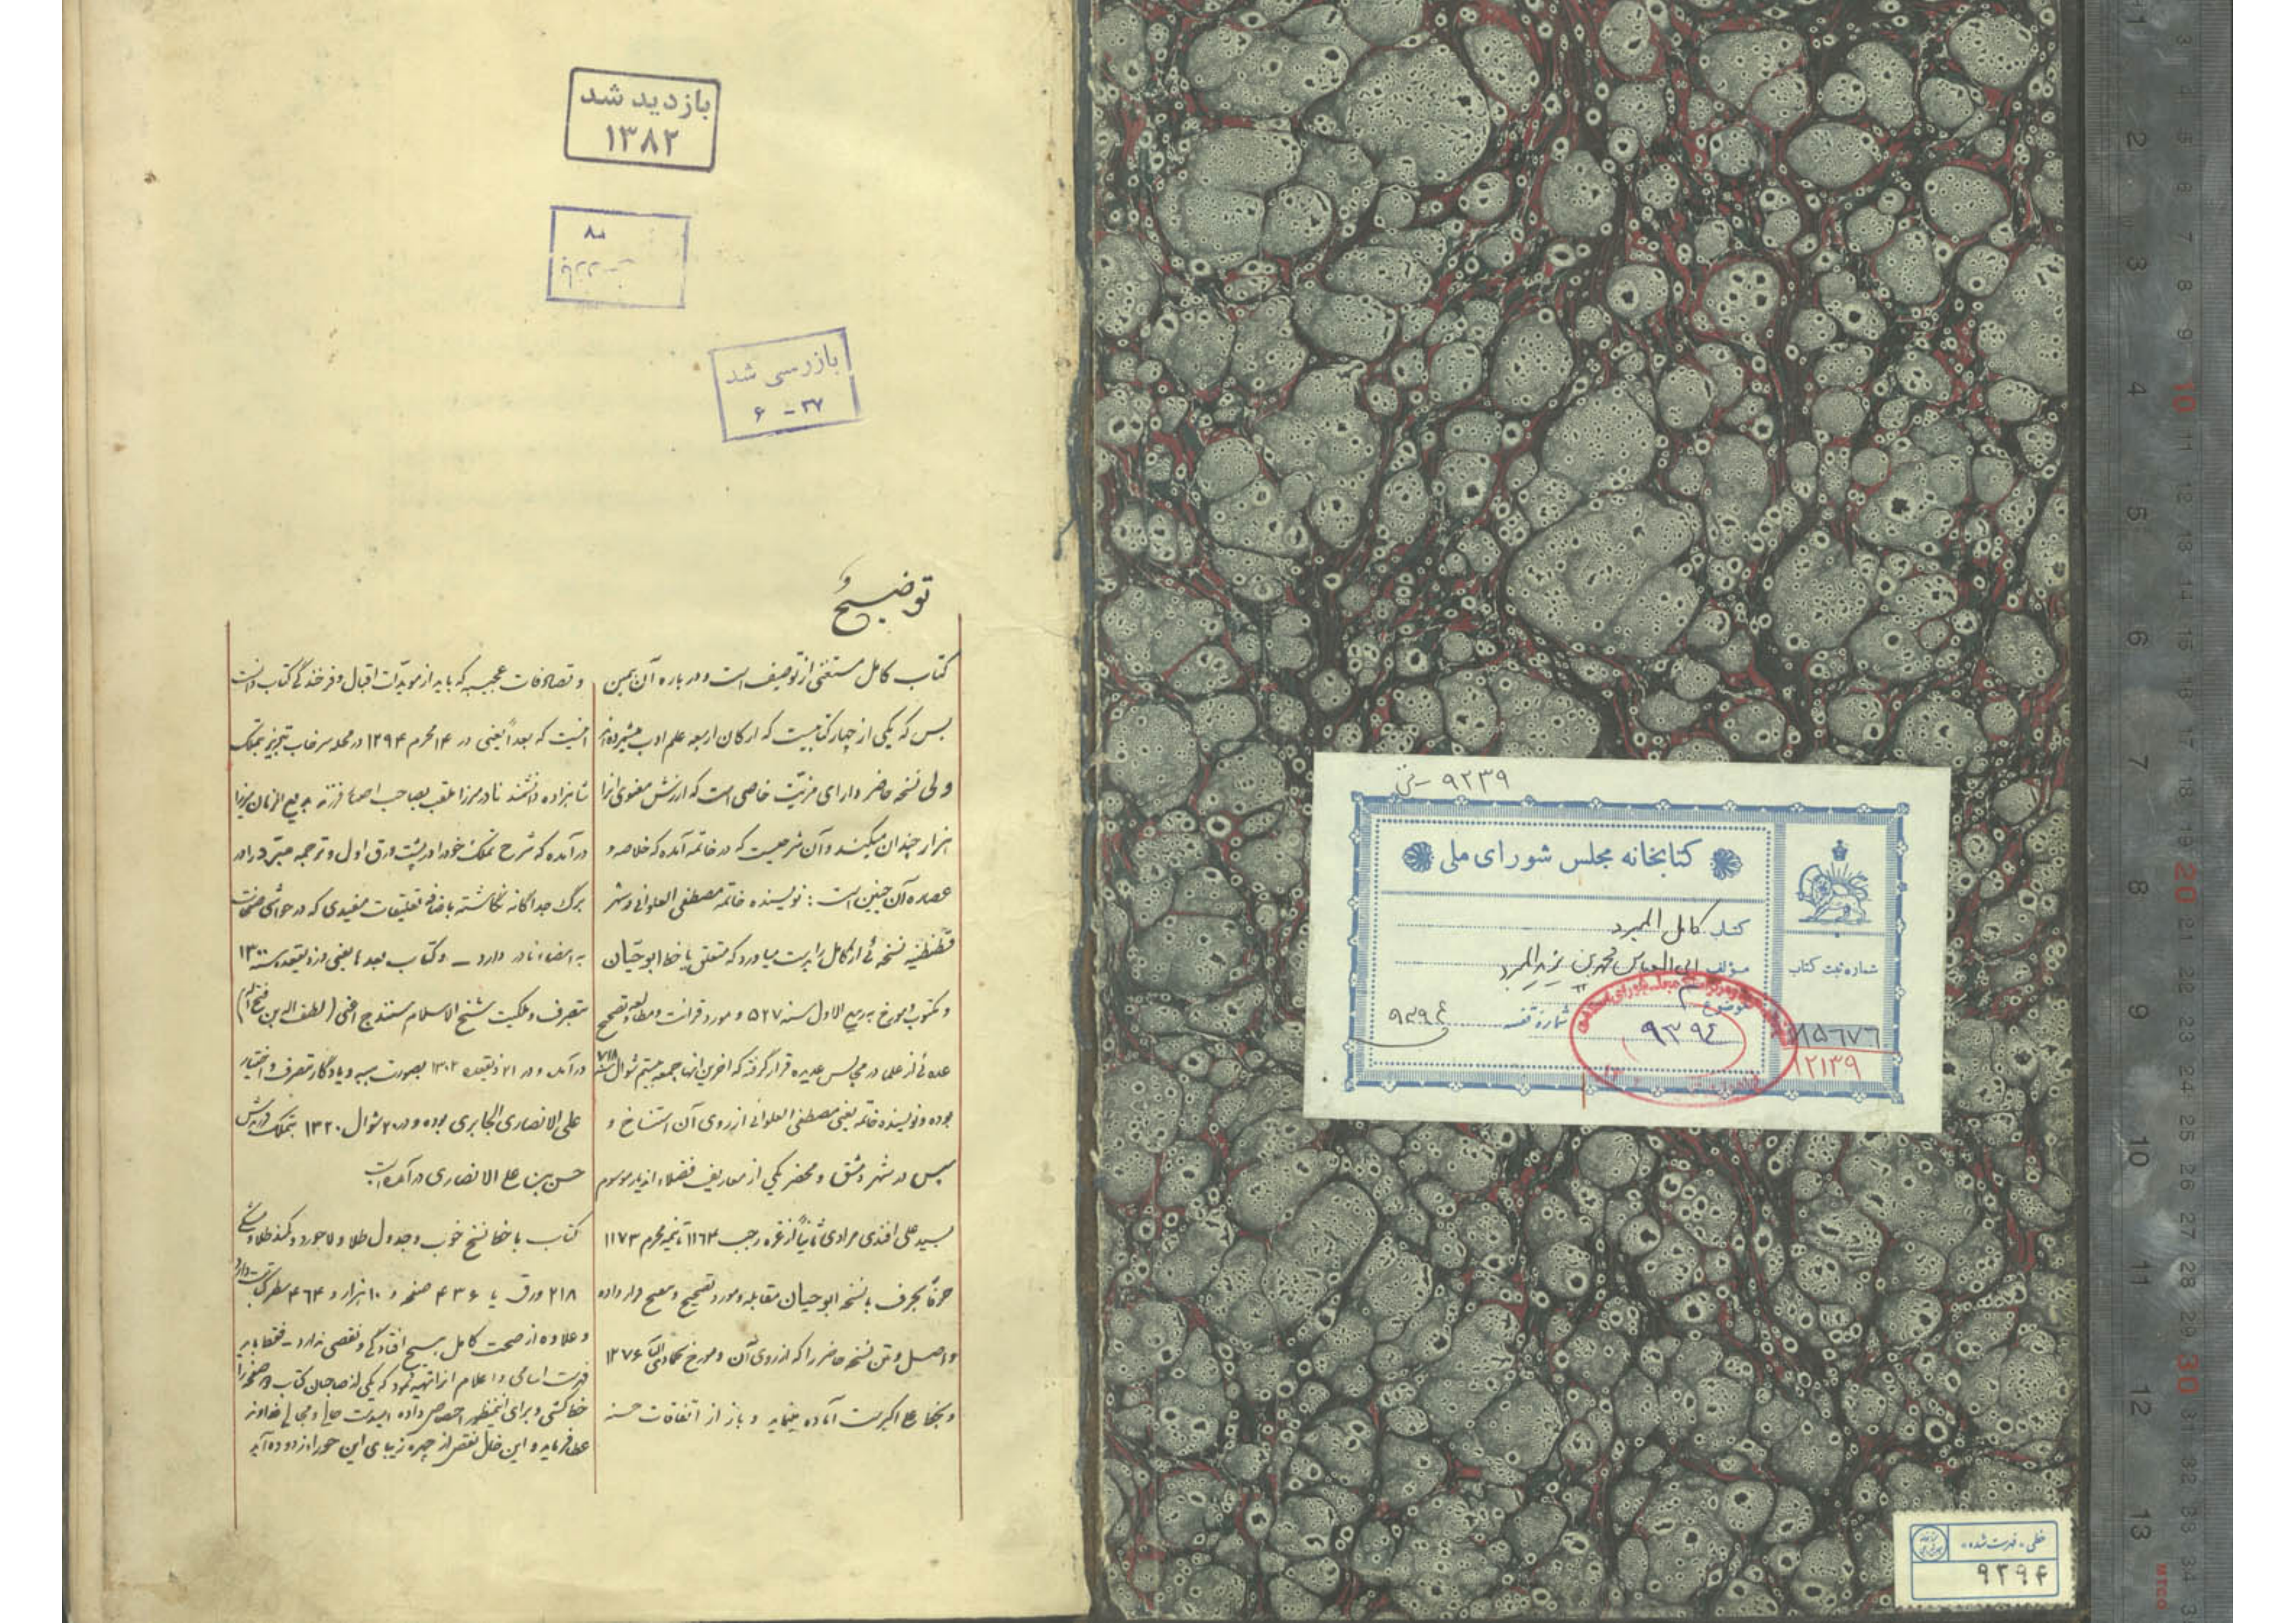 بازدید شد
۱۳۸۲
بازرسی شد
۶ - ۳۷
توضیح
کتاب کامل مستغنی از توصیف است و درباره آن همین
بس که یکی از چهار کتابیست که ارکان اربعه علم ادب
ولی نسخه حاضر دارای مزیّت خاصی است که ارزش معنوی آنرا
هزار چندان میکند و آن شرحیست که در خاتمه آمده که خلاصه و
عصاره آن چنین است : نویسنده خاتمه مصطفی العلوانی در شهر
قسطنطنیه نسخه ئی از کامل را بدست میاورد که متعلق یا خط ابوحیّان
و مکتوب و مورخ به ربیع الاول سنه ۵۲۷ و مورد قرائت و مطالعه و تصحیح
عده ئی از علما در مجالس عدیده قرار گرفته که آخرین آنها جمعه بیستم شوال سنه ۷۱۸
بوده و نویسنده خاتمه یعنی مصطفی العلوانی از روی آن استنساخ و
سپس در شهر دمشق و محضر یکی از معاریف فضلاء آندیار موسوم
بسید علی افندی مرادی ثانیاً از غره رجب ۱۱۶۴ تا نیمه محرم ۱۱۷۳
حرفاً بحرف با نسخه ابوحیان مقابله و مورد تصحیح و تنقیح قرار داده
و اصل و متن نسخه حاضر را که از روی آن و مورخ ۱۲۷۶
و بخط علی اکبر است آماده مینماید و باز از اتفاقات حسنه
و تصادفات عجیبه که باید از مویّدات اقبال و فرخندگی کتاب دانست
اینست که بعداً یعنی در ۱۴ محرم ۱۲۹۴ در محله سرخاب تبریز بتملک
شاهزاده دانشمند نادر میرزا ملقب بصاحب اختیار فرزند بدیع الزمان میرزا
درآمده که شرح تملک خود را در پشت ورق اول و ترجمه مبرّد را در
برگ جداگانه نگاشته باضافه تعلیقات مفیدی که در حواشی صفحات
به امضاء نادر دارد – و کتاب بعداً یعنی در ذیقعده سنه ۱۳۰۰
بتصرف و ملکیت شیخ الاسلام سنندج اعنی (لطف اله بن فتح اله)
درآمده و در ۲۱ ذیقعده ۱۳۰۲ بصورت هبه و یادگار بتصرف و اختیار
علی الانصاری الجابری بوده و در ۲۰ شوال ۱۳۲۰ بتملک فرزندش
حسن بن علی الانصاری درآمده است
کتاب با خط نسخ خوب و جدول طلا و لاجورد و کمند طلا و مشکی
۲۱۸ ورق یا ۴۳۶ صفحه و ۱۰ هزار و ۴۶۴ سطر کتابت دارد
و علاوه از صحت کامل هیچ افتادگی و نقصی ندارد – فقط باید
فهرست اسامی و اعلام آنرا تهیه نمود که یکی از صاحبان کتاب صفحه را
خط کشی و برای اینمنظور اختصاص داده امیدست حالی و مجالی خداوند
عطا فرماید و این خلل نقص از چهره زیبای این حورا زدوده آید
۹۲۳۹ - خی
کتابخانه مجلس شورای ملی
کتاب کامل المبرد
مؤلف ابی العباس محمد بن یزید المبرد
موضوع
شماره قفسه ۹۳۹۴
۹۳۹۴
شماره ثبت کتاب
۸۵۶۷۶
۱۲۱۳۹
خطی - فهرست شده
۹۳۹۴